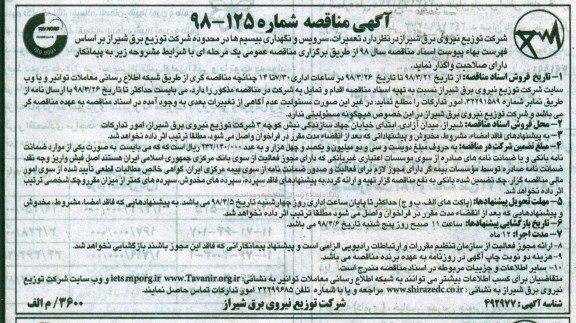 آگهی مناقصه شماره ۱۲۵-۹۸
شرکت توزیع نیروی برق شیراز در نظر دارد تعمیرات، سرویس و نگهداری بیسیم ها در محدوده شرکت توزیع برق شیراز بر اساس
فهرست بهاء پیوست اسناد مناقصه سال ۹۸ از طریق برگزاری مناقصه عمومی یک مرحله ای با شرایط مشروحه زیر به پیمانکار
دارای صلاحیت واگذار نماید.
۱- تاریخ فروش اسناد مناقصه: از تاریخ ۹۸/۳/۲۱ تا تاریخ ۹۸/۳/۲۶ در ساعات اداری ۷/۳۰ تا ۱۴ چنانچه مناقصه گری از طریق شبکه اطلاع رسانی معاملات توانیر و یا وب
سایت شرکت توزیع نیروی برق شیراز نسبت به تهیه اسناد مناقصه اقدام و تمایل به شرکت در مناقصه مذکور را دارد، می بایست حداکثر تا تاریخ ۹۸/۳/۲۶ با ارسال نامه از
طریق نمابر شماره ۳۲۲۹۱۵۸۹ امور تدارکات را مطلع نماید، در غیر این صورت مسئولیت عدم آگاهی از تغییرات بعدی به وجود آمده در اسناد مناقصه به عهده مناقصه گر
می باشد و شرکت توزیع نیروی برق شیراز در این خصوص هیچگونه مسئولیتی ندارد.
۲- محل فروش اسناد مناقصه: شیراز، میدان آزادی، ابتدای خیابان جهاد سازندگی نبش کوچه ۳ شرکت توزیع نیروی برق شیراز، امور تدارکات
۳- به پیشنهادهای فاقد امضاء، مشروط، مخدوش و پیشنهاداتی که بعد از انقضاء مدت مقرر در فراخوان واصل می شود، مطلقا ترتیب اثر داده نخواهد شد.
۴- مبلغ تضمین شرکت در مناقصه: به حروف مبلغ دویست و سی و دو میلیون و یکصد و چهل هزار و به عدد ۲۳۲/۱۴۰/۰۰۰ ریال است که می بایست به صورت یکی از موارد ضمانت
نامه بانکی و یا ضمانت نامه های صادره از سوی موسسات اعتباری غیربانکی که دارای مجوز فعالیت از سوی بانک مرکزی جمهوری اسلامی ایران هستند اصل فیش واریز وجه نقد
ضمانت نامه صادره توسط مؤسسات بیمه گر دارای مجوز لازم برای فعالیت و صدور ضمانت نامه از سوی بیمه مرکزی ایران، گواهی خالص مطالبات قطعی تأیید شده از سوی امور
مالی مناقصه گزار، چک تضمین شده بانکی به نفع مناقصه گزار تهیه و ارائه گردد به پیشنهادهای فاقد سپرده، سپرده های مخدوش، سپرده های کمتر از میزان مقرر و چک شخصی ترتیب
اثر داده نخواهد شد.
۵- مهلت تحویل پیشنهادها: (پاکت های الف، ب و ج) حداکثر تا پایان ساعت اداری روز چهارشنبه تاریخ ۹۸/۴/۵ می باشد. به پیشنهادهایی که فاقد امضا، مشروط، مخدوش
و پیشنهادهایی که بعد از انقضاء مدت مقرر در فراخوان واصل می شود مطلقا ترتیب اثر داده نخواهد شد.
۶- تاریخ بازگشایی پیشنهادها: ساعت ۱۱ صبح روز پنج شنبه تاریخ ۹۸/۴/۶ می باشد.
۷- مدت اجراء: ۱۲ ماه
۸- ارائه مجوز فعالیت از سازمان تنظیم مقررات و ارتباطات رادیویی الزامی است و پیشنهاد پیمانکارانی که فاقد این مجوز باشند بازگشایی نخواهد شد.
۹- هزینه دو نوبت چاپ آگهی در روزنامه به عهده برنده مناقصه می باشد.
۱۰- سایر اطلاعات و جزییات مربوطه در اسناد مناقصه مندرج است.
متقاضیان برای کسب اطلاعات بیشتر می توانند به شبکه اطلاع رسانی معاملات توانیر به نشانی: www.Tavanir.org.ir یا iets.mporg.ir و وب سایت شرکت توزیع
نیروی برق شیراز به نشانی: www.shirazedc.co.ir مراجعه و یا با شماره تلفن ۳۲۲۹۹۶۸۵ امور تدارکات تماس حاصل نمایند.
شناسه آگهی: ۴۹۲۹۷۷
شرکت توزیع نیروی برق شیراز
۳۶۰۰/م الف